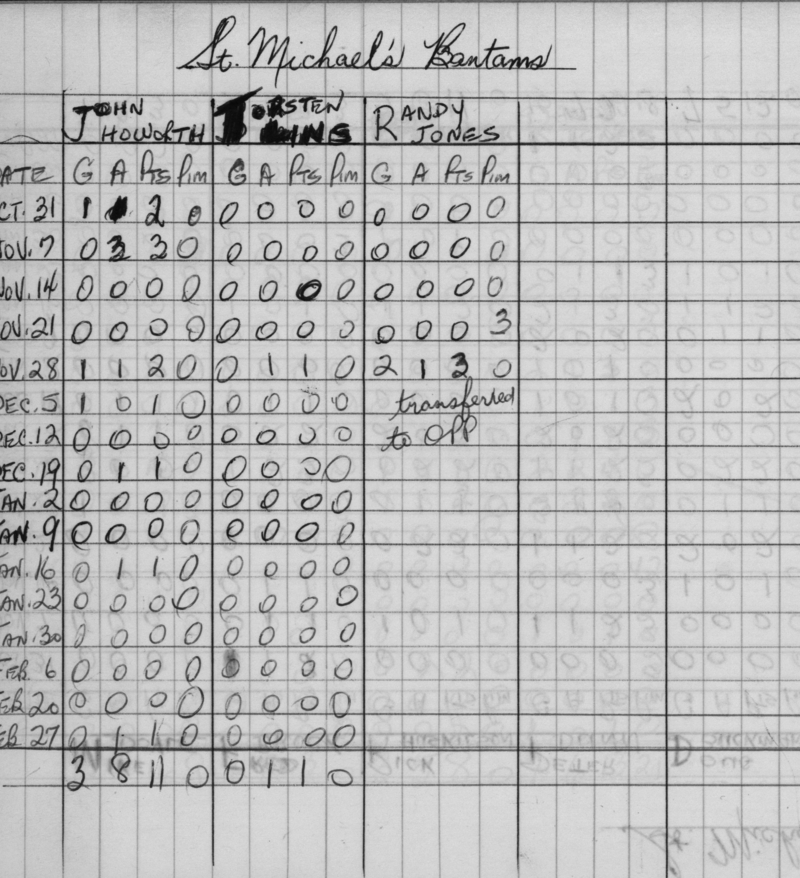 St. Michael's Bantams
JOHN HOWORTH TORSTEN RANDY JONES
ATE G A Pts Pim G A Pts Pim G A Pts Pim
CT. 31 1 1 2 0 0 0 0 0 0 0 0 0
OV. 7 0 3 3 0 0 0 0 0 0 0 0 0
OV. 14 0 0 0 0 0 0 0 0 0 0 0 0
OV. 21 0 0 0 0 0 0 0 0 0 0 0 3
OV. 28 1 1 2 0 0 1 1 0 2 1 3 0
DEC. 5 1 0 1 0 0 0 0 0 transferred
DEC. 12 0 0 0 0 0 0 0 0 to OPP
DEC. 19 0 1 1 0 0 0 0 0
AN. 2 0 0 0 0 0 0 0 0
AN. 9 0 0 0 0 0 0 0 0
AN. 16 0 1 1 0 0 0 0 0
AN. 23 0 0 0 0 0 0 0 0
AN. 30 0 0 0 0 0 0 0 0
FEB. 6 0 0 0 0 0 0 0 0
EB 20 0 0 0 0 0 0 0 0
EB 27 0 1 1 0 0 0 0 0
3 8 11 0 0 1 1 0